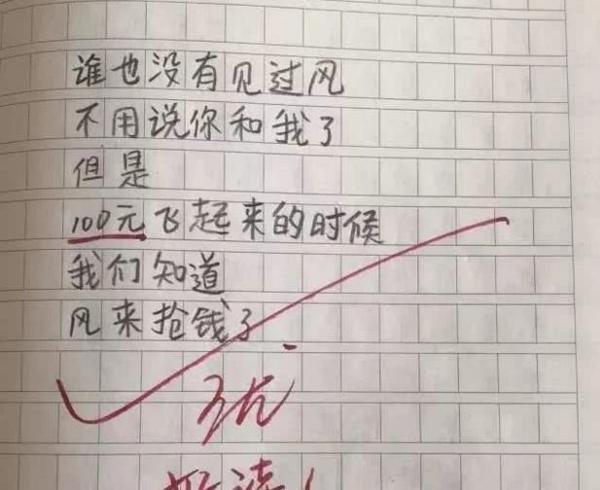 谁也没有见过风
不用说你和我了
但是
100元飞起来的时候
我们知道
风来抢钱了
优